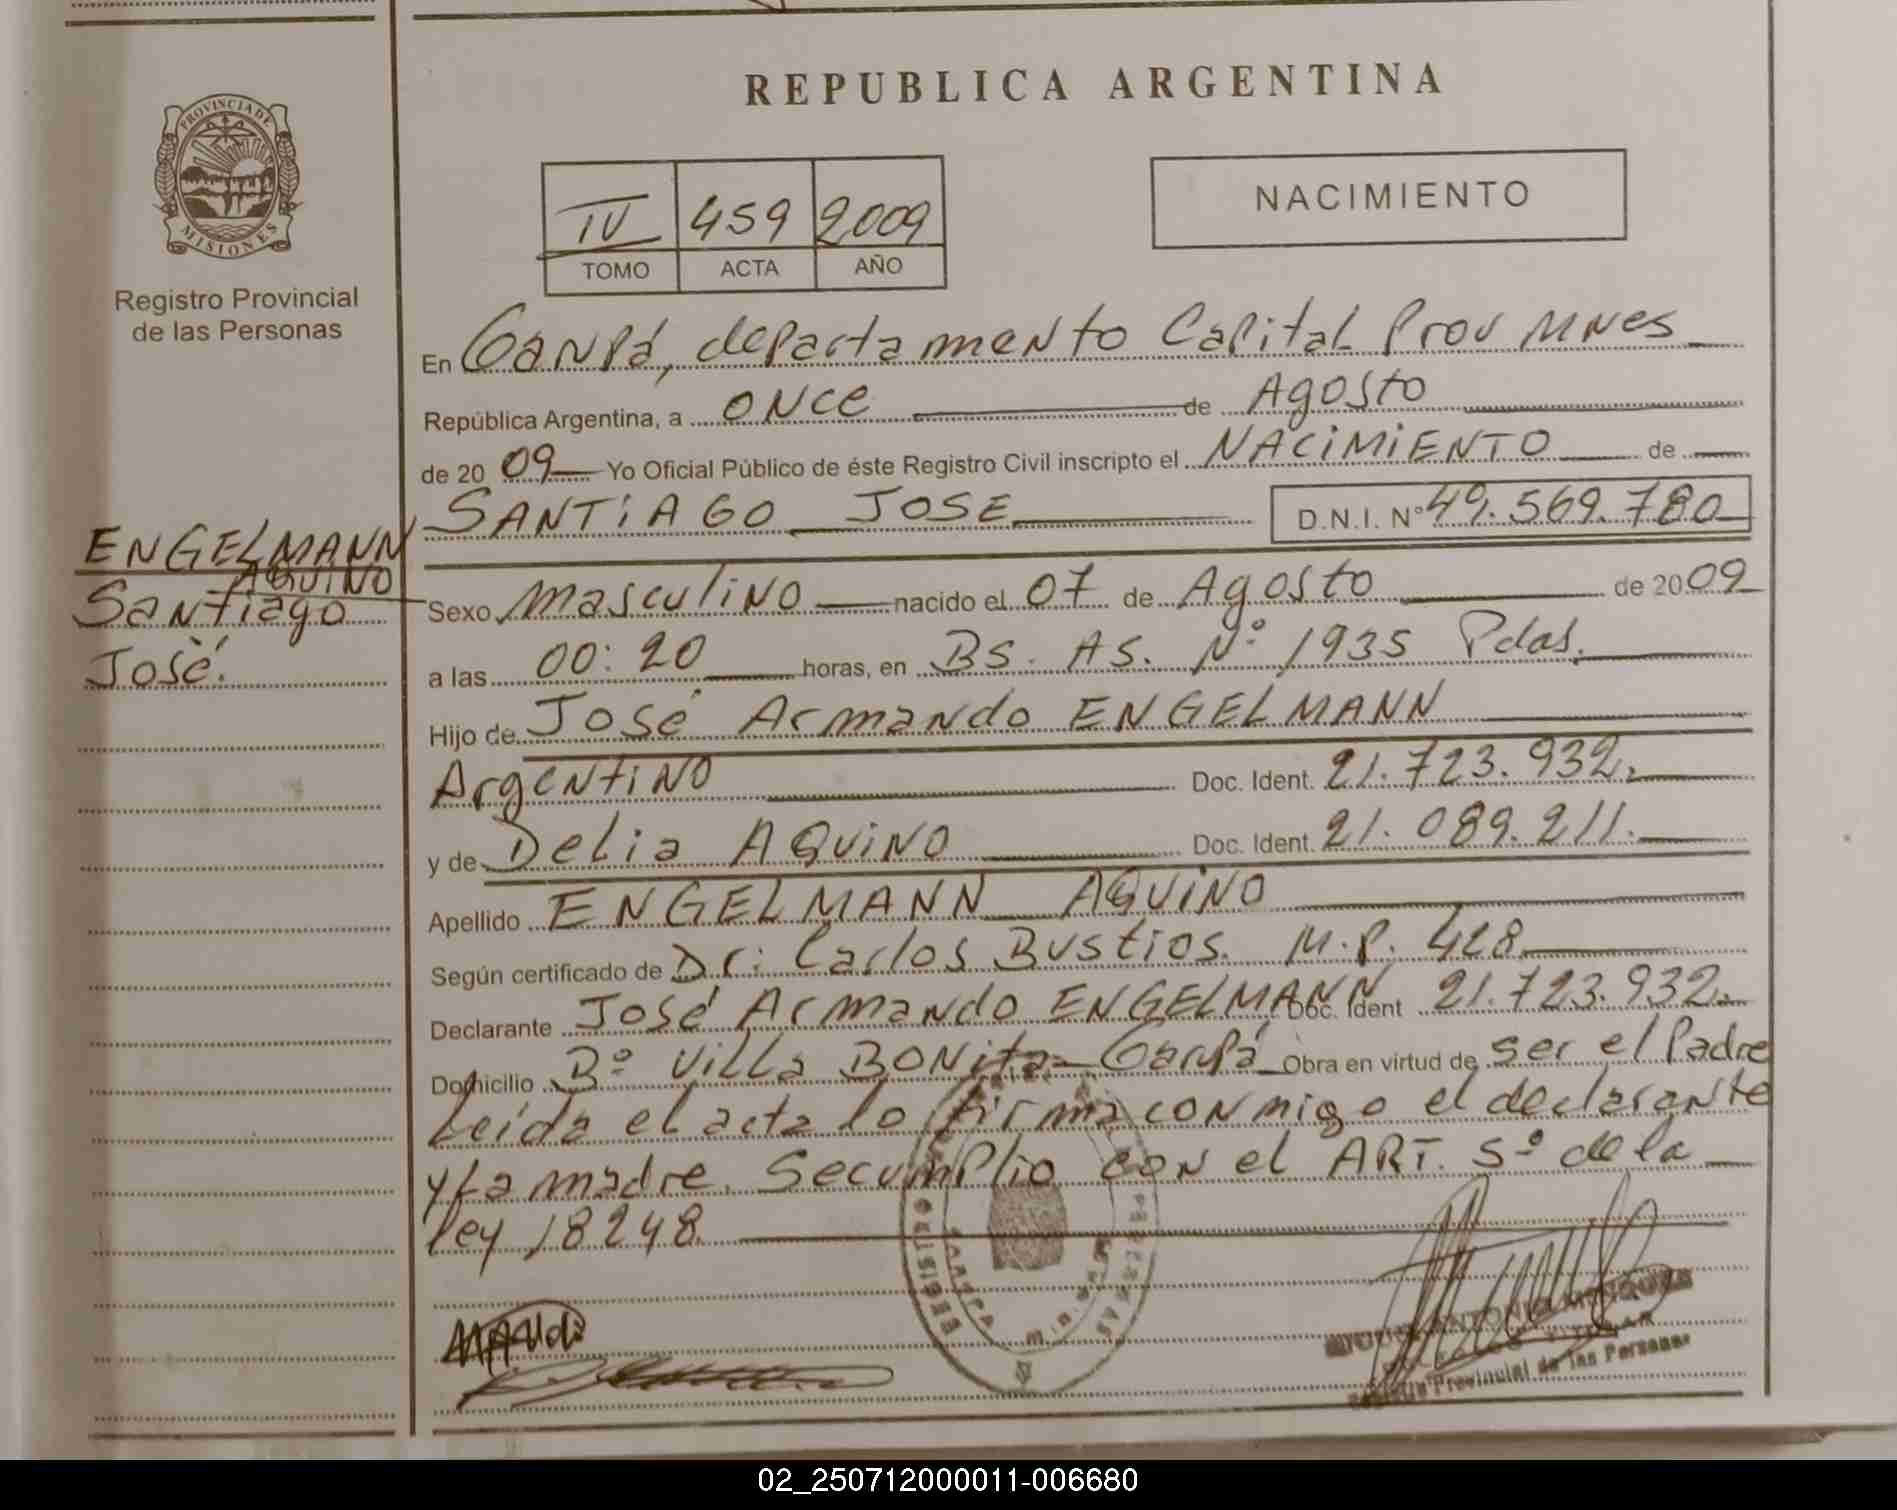 REPUBLICA ARGENTINA
PROVINCIA DE
MISIONES
Registro Provincial
de las Personas
IV 459 2009
TOMO ACTA AÑO
NACIMIENTO
En Garupá, departamento Capital Prov Mnes
República Argentina, a once de Agosto
de 2009 Yo Oficial Público de éste Registro Civil inscripto el NACIMIENTO de
SANTIAGO JOSE D.N.I. Nº 49.569.780
ENGELMANN
AQUINO
Santiago
José.
Sexo Masculino nacido el 07 de Agosto de 2009
a las 00:20 horas, en Bs. As. Nº 1935 Pdas.
Hijo de José Armando ENGELMANN
Argentino Doc. Ident. 21.723.932.
y de Delia AQUINO Doc. Ident. 21.089.211.
Apellido ENGELMANN AQUINO
Según certificado de Dr: Carlos Bustios. M.P. 428
Declarante José Armando ENGELMANN Doc. Ident 21.723.932.
Domicilio Bº Villa BONita - Garupá Obra en virtud de ser el Padre
Leida el acta lo firma conmigo el declarante
y La madre. Se cumplio con el ART. 5º de la
ley 18248.
REGISTRO
PERSONAS
ANTONIO
TITULAR
Registro Provincial de las Personas
02_250712000011-006680